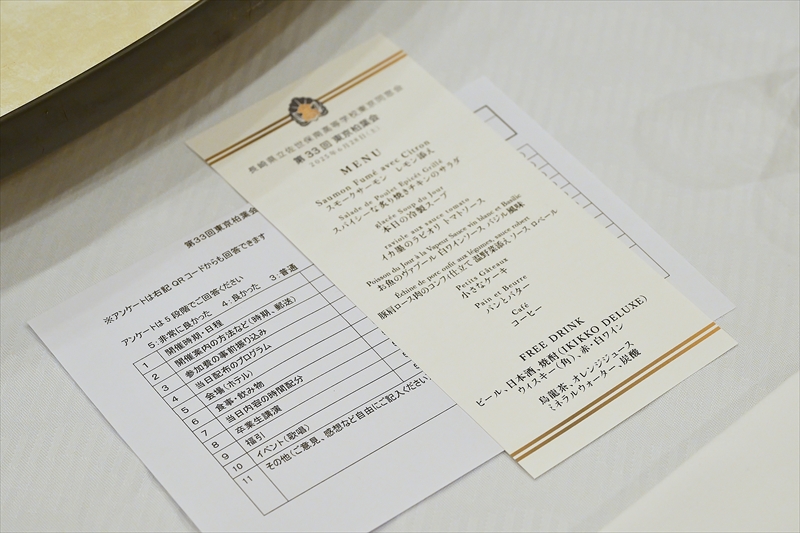 長崎県立佐世保南高等学校東京同窓会
第33回 東京柏葉会
MENU
Saumon Fumé avec Citron
スモークサーモン レモン添え
Salade de Poulet Epicés Grillé
スパイシーな炙り焼きチキンのサラダ
glacée Soup du Jour
本日の冷製スープ
raviole aux sauce tomate
イカ墨のラビオリ トマトソース
Poisson du Jour à la Vapeur Sauce vin blanc et Basilic
お魚のヴァプール 白ワインソース、バジル風味
Échine de porc onfit aux légumes, sauce robert
豚肩ロース肉のコンフィ仕立て 温野菜添えソース ロベール
Petits Gâteaux
小さなケーキ
Pain et Beurre
パンとバター
Café
コーヒー
FREE DRINK
ビール、日本酒、焼酎(IKIKKO DELUXE)
ウィスキー(角)、赤・白ワイン
烏龍茶、オレンジジュース
ミネラルウォーター、炭酸
第33回東京柏葉会
※アンケートは右記QRコードからも回答できます
アンケートは5段階でご回答ください
5:非常に良かった 4:良かった 3:普通
1 開催時期・日程
2 開催案内の方法など(時期、郵送)
3 参加費の事前振り込み
4 当日配布のプログラム
5 会場(ホテル)
6 食事・飲み物
7 当日内容の時間配分
8 卒業生講演
9 福引
10 イベント(歌唱)
11 その他(ご意見、感想など自由にご記入ください)